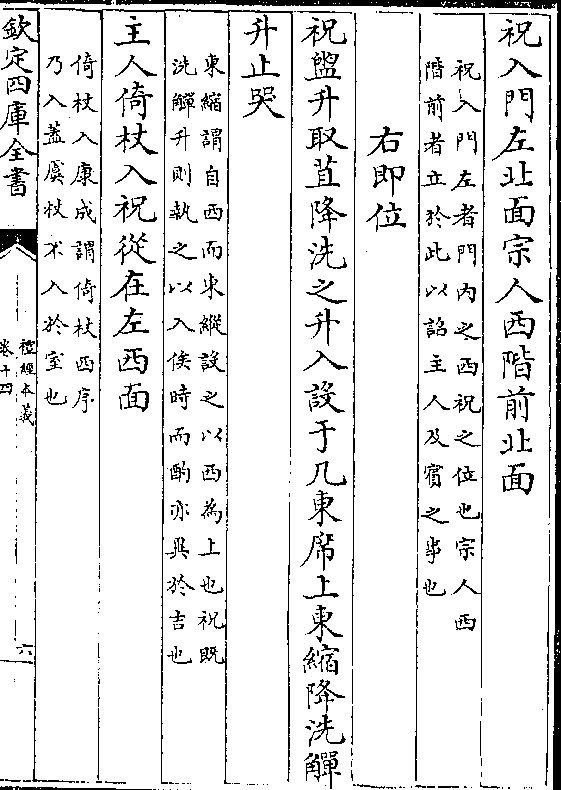 祝入門左北面宗人西階前北面
祝入門左者門內之西祝之位也宗人西
階前者立於此以詔主人及賓之事也
右即位
祝盥升取苴降洗之升入設于几東席上東縮降洗觶
升止哭
東縮謂自西而東縱設之以西為上也祝既
洗觶升則執之以入俟時而酌亦異於吉也
主人倚杖入祝從在左西面
倚杖入康成謂倚杖西序
乃入蓋虞杖不入於室也
欽定四庫全書
禮經本義
卷十四
六